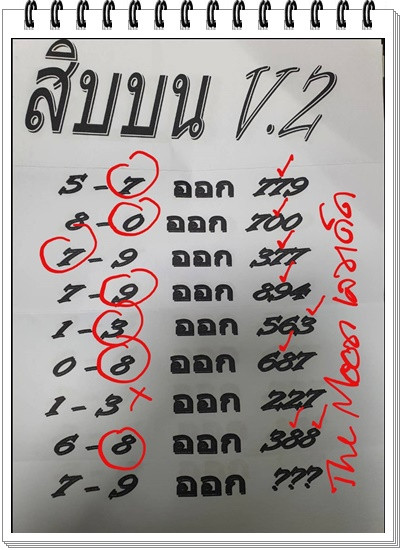 สิบบน V.2
5 - 7 ออก 779
8 - 0 ออก 700
7 - 9 ออก 377
7 - 9 ออก 894
1 - 3 ออก 563
0 - 8 ออก 687
1 - 3 × ออก 227
6 - 8 ออก 388
7 - 9 ออก ???
The Moon